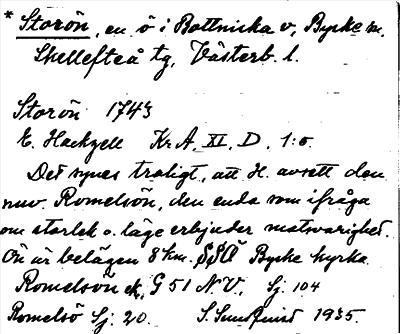 * Storön, en ö i Bottniska v, Byske sn.
Skellefteå tg, Västerb. l.
Storön 1743
E. Hackzell Kr A. XI. D. 1:5.
Det synes troligt, att H. avsett den
nuv. Romelsön, den enda som ifråga
om storlek o. läge erbjuder motsvarighet.
Ön är belägen 8 km. SSO Byske kyrka.
Romelsön ek, G 51 N.V., Lj. 104
Romelsö Lj. 20. S. Sundquist 1935.